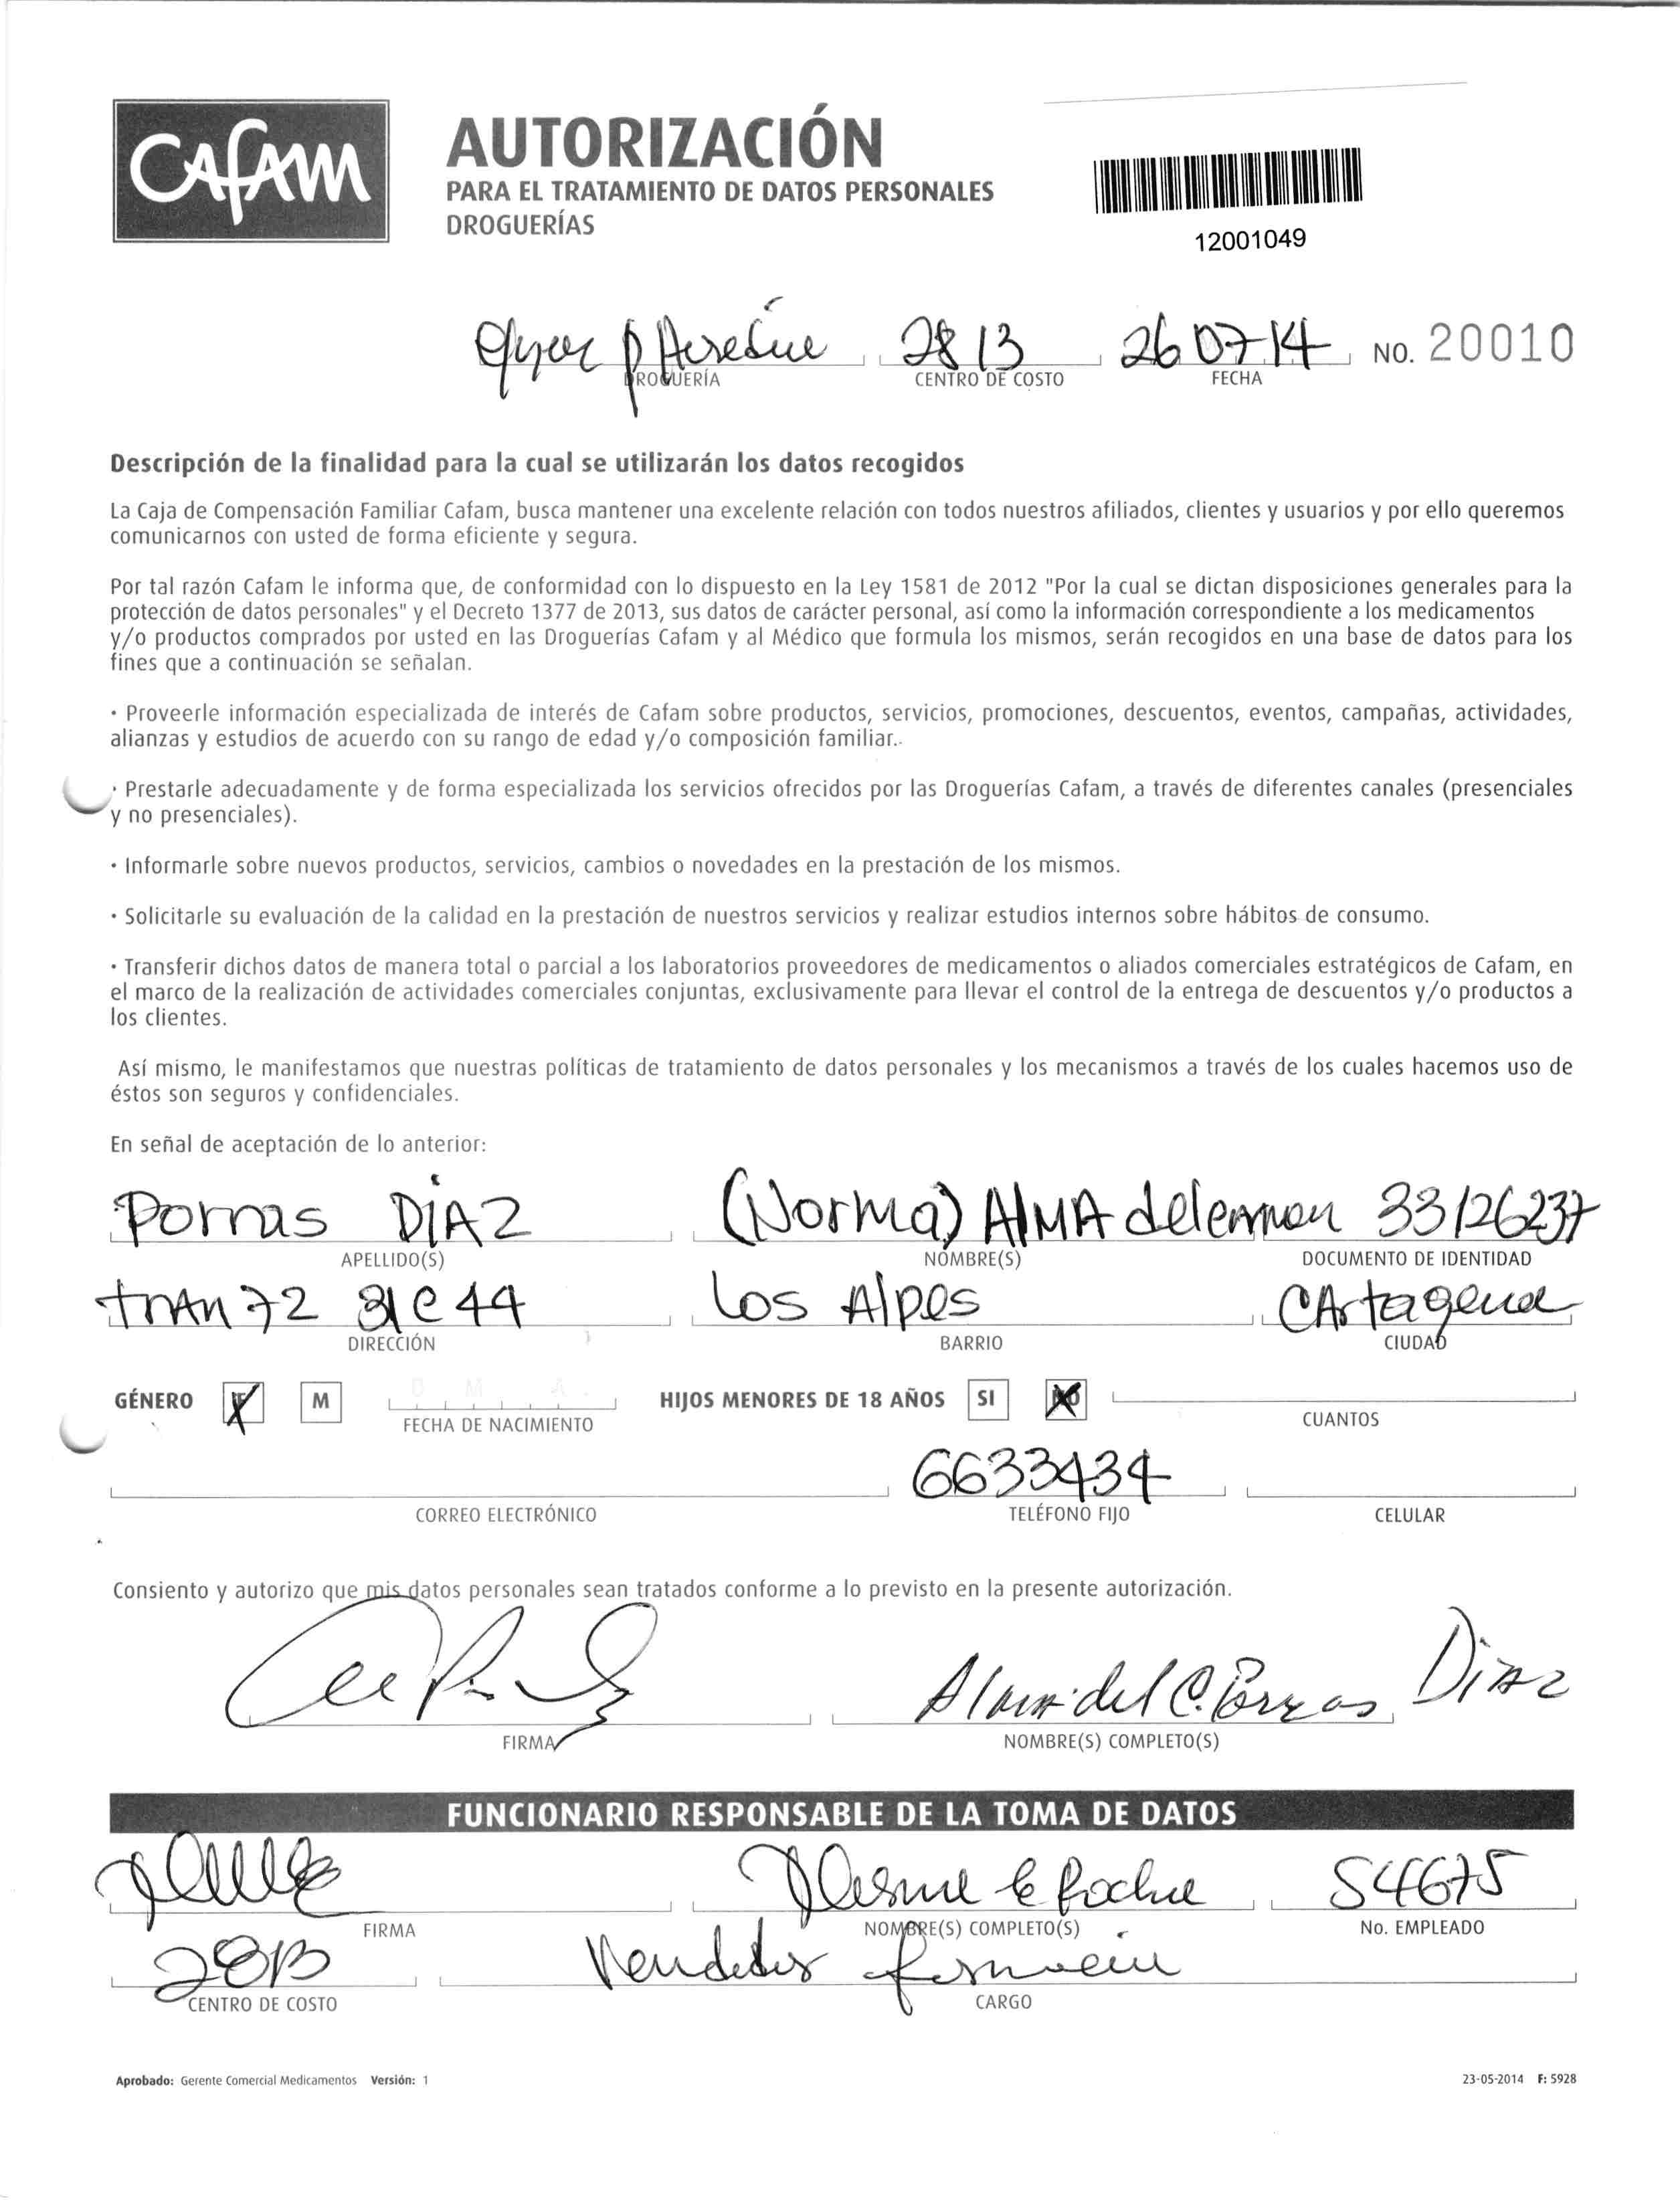 CAFAM
AUTORIZACIÓN
PARA EL TRATAMIENTO DE DATOS PERSONALES
DROGUERÍAS
12001049
2813 26 07 14 NO. 20010
DROGUERÍA CENTRO DE COSTO FECHA
Descripción de la finalidad para la cual se utilizarán los datos recogidos
La Caja de Compensación Familiar Cafam, busca mantener una excelente relación con todos nuestros afiliados, clientes y usuarios y por ello queremos
comunicarnos con usted de forma eficiente y segura.
Por tal razón Cafam le informa que, de conformidad con lo dispuesto en la Ley 1581 de 2012 "Por la cual se dictan disposiciones generales para la
protección de datos personales" y el Decreto 1377 de 2013, sus datos de carácter personal, así como la información correspondiente a los medicamentos
y/o productos comprados por usted en las Droguerías Cafam y al Médico que formula los mismos, serán recogidos en una base de datos para los
fines que a continuación se señalan.
· Proveerle información especializada de interés de Cafam sobre productos, servicios, promociones, descuentos, eventos, campañas, actividades,
alianzas y estudios de acuerdo con su rango de edad y/o composición familiar..
· Prestarle adecuadamente y de forma especializada los servicios ofrecidos por las Droguerías Cafam, a través de diferentes canales (presenciales
y no presenciales).
· Informarle sobre nuevos productos, servicios, cambios o novedades en la prestación de los mismos.
· Solicitarle su evaluación de la calidad en la prestación de nuestros servicios y realizar estudios internos sobre hábitos de consumo.
· Transferir dichos datos de manera total o parcial a los laboratorios proveedores de medicamentos o aliados comerciales estratégicos de Cafam, en
el marco de la realización de actividades comerciales conjuntas, exclusivamente para llevar el control de la entrega de descuentos y/o productos a
los clientes.
Así mismo, le manifestamos que nuestras políticas de tratamiento de datos personales y los mecanismos a través de los cuales hacemos uso de
éstos son seguros y confidenciales.
En señal de aceptación de lo anterior:
Porras DIAZ (Norma) AlMA del 33126237
APELLIDO(S) NOMBRE(S) DOCUMENTO DE IDENTIDAD
trAn 72 31C 44 Los Alpes CArtagena
DIRECCIÓN BARRIO CIUDAD
GÉNERO F M D M A HIJOS MENORES DE 18 AÑOS SI NO
FECHA DE NACIMIENTO CUANTOS
6633434
CORREO ELECTRÓNICO TELÉFONO FIJO CELULAR
Consiento y autorizo que mis datos personales sean tratados conforme a lo previsto en la presente autorización.
Alma del C. Porras Diaz
FIRMA NOMBRE(S) COMPLETO(S)
FUNCIONARIO RESPONSABLE DE LA TOMA DE DATOS
54675
FIRMA NOMBRE(S) COMPLETO(S) No. EMPLEADO
2813 Vendedor
CENTRO DE COSTO CARGO
Aprobado: Gerente Comercial Medicamentos Versión: 1 23-05-2014 F: 5928